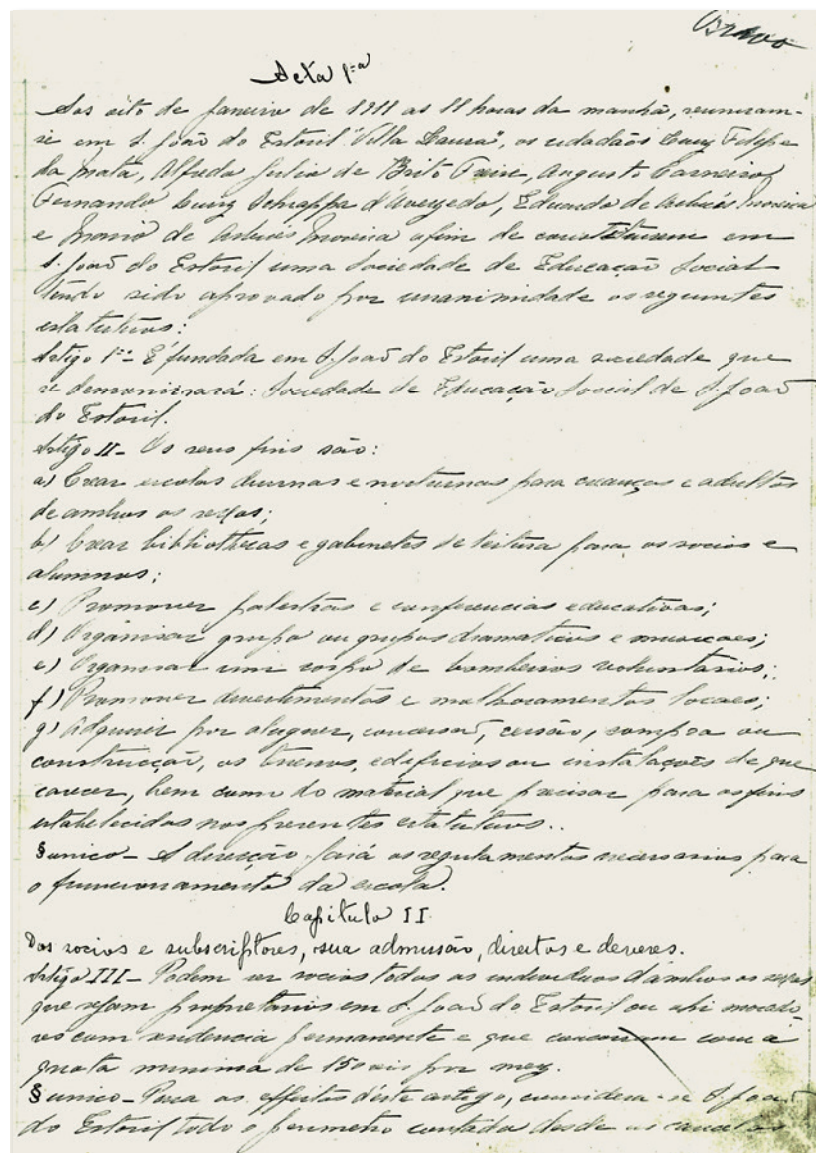 Bravo
Acta 1ª
Aos oito de Janeiro de 1911 as 11 horas da manhã, reuniram-
se em S. João do Estoril "Villa Laura", os cidadãos Luiz Filippe
da Mata, Alfredo Julio de Brito Freire, Augusto Carneiro,
Fernando Luiz Schiappa d'Avezedo, Eduardo de Moreira
e Mario de Moreira afim de constituirem em
S. João do Estoril uma Sociedade de Educação Social
tendo sido aprovado por unanimidade os seguintes
estatutos:
Artigo 1º- É fundada em S. João do Estoril uma sociedade que
se denominará: Sociedade de Educação Social de S. João
do Estoril.
Artigo II- Os seus fins são:
a) Crear escolas diurnas e nocturnas para creanças e adultos
de ambos os sexos;
b) Crear bibliothecas e gabinetes de leitura para os socios e
alumnos;
c) Promover palestras e conferencias educativas;
d) Organisar grupo ou grupos dramaticos e musicaes;
e) Organisar um corpo de bombeiros voluntarios;
f) Promover divertimentos e melhoramentos locaes;
g) Adquirir por aluguer, concessão, cessão, compra ou
construcção, os terrenos, edificios ou instalações de que
carecer, bem como do material que precisar para os fins
estabelecidos nos presentes estatutos..
§ unico- A direcção fará os regulamentos necessarios para
o funcionamento da escola.
Capitulo II
Dos socios e subscriptores, sua admissão, direitos e deveres.
Artigo III- Podem ser socios todos os individuos d'ambos os sexos
que sejam proprietarios em S. João do Estoril ou ahi morado-
res com residencia permanente e que concorram com a
quota minima de 150 reis por mez.
§ unico- Para os effeitos d'este artigo, considera-se S. João
do Estoril todo o perimetro contado desde as